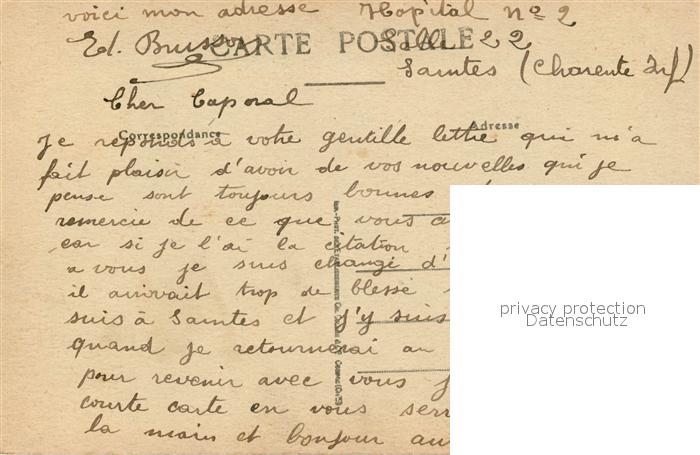 voici mon adresse Hopital No 2
Ed. CARTE POSTALE Salle 22
Saintes (Charente Inf)
Cher Caporal
Correspondance Adresse
Je reponds à votre gentille lettre qui m'a
fait plaisir d'avoir de vos nouvelles qui je
pense sont toujours bonnes
remercie de ce que vous a
car si je l'ai la citation
a vous je suis changé d'
il arrivait trop de blessé
suis à Saintes et j'y suis
quand je retournerai au
pour revenir avec vous j
courte carte en vous serr
la main et bonjour au
privacy protection
Datenschutz